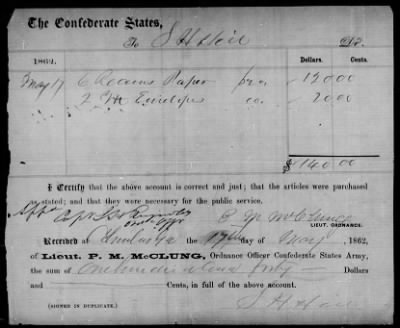 The Confederate States,
To S H Hoil Dr.
1862. Dollars. Cents.
May 17 6 Reams Paper 120 00
2 M Envelopes 20 00
$ 140.00
I Certify that the above account is correct and just; that the articles were purchased
stated; and that they were necessary for the public service.
P M McClung
LIEUT. ORDNANCE.
Received at the 17th day of May, 1862,
of Lieut. P. M. McCLUNG, Ordnance Officer Confederate States Army,
the sum of One hundred and forty Dollars
and Cents, in full of the above account.
(SIGNED IN DUPLICATE.) S H Hoil